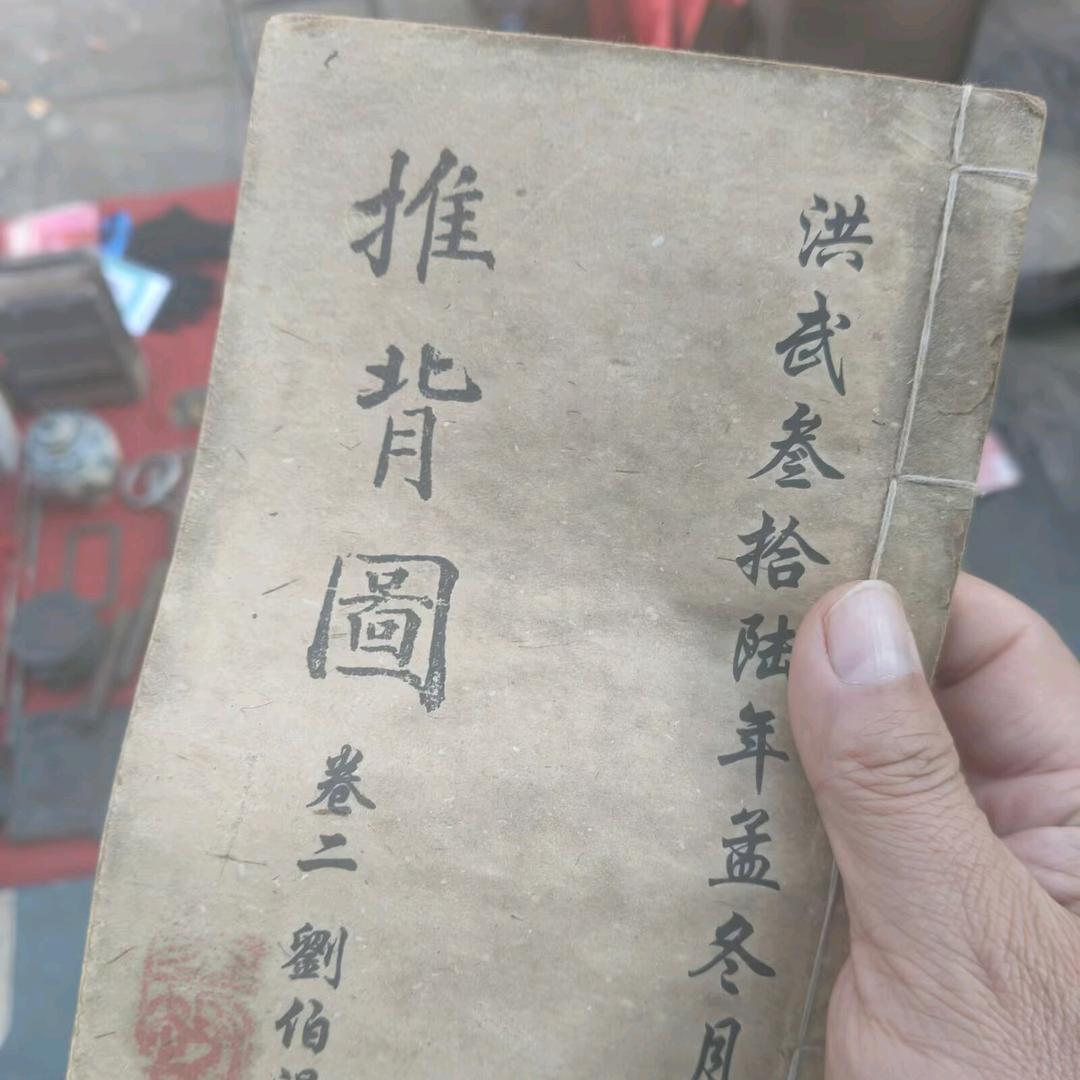 洪武叁拾陆年孟冬月
推背圖
卷二 劉伯温